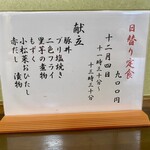 日替り定食
九〇〇円
十二月四日
十一時三十分～
十三時三十分
献立
豚丼
ブリ塩焼き
二色フライ
里芋の煮物
もずく
小松菜おひたし
赤だし 漬物